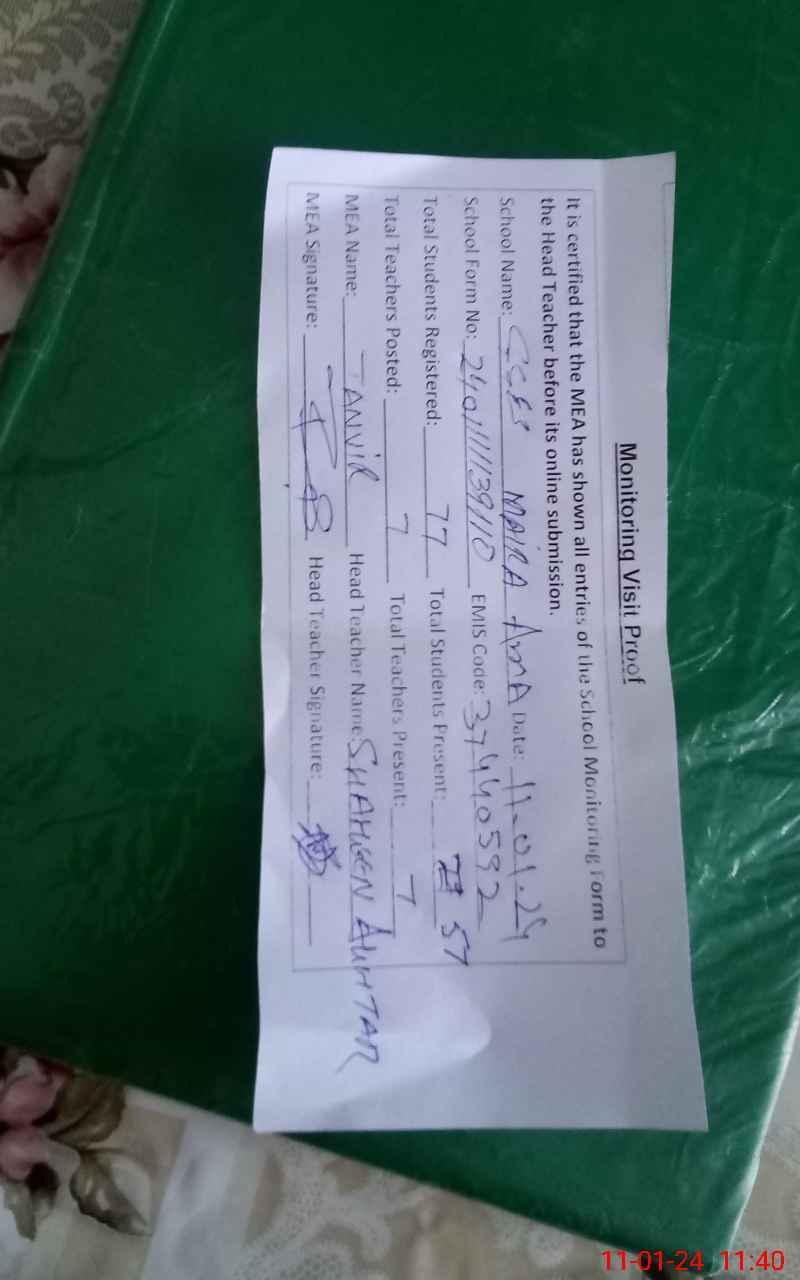 Monitoring Visit Proof
It is certified that the MEA has shown all entries of the School Monitoring Form to
the Head Teacher before its online submission.
School Name: MAIRA AMA Date: 11.01.24
School Form No: EMIS Code: 37440592
Total Students Registered: 77 Total Students Present: 57
Total Teachers Posted: 7 Total Teachers Present: 7
MEA Name: TANVIR Head Teacher Name: SHAHEEN AKHTAR
MEA Signature: Head Teacher Signature:
11-01-24 11:40